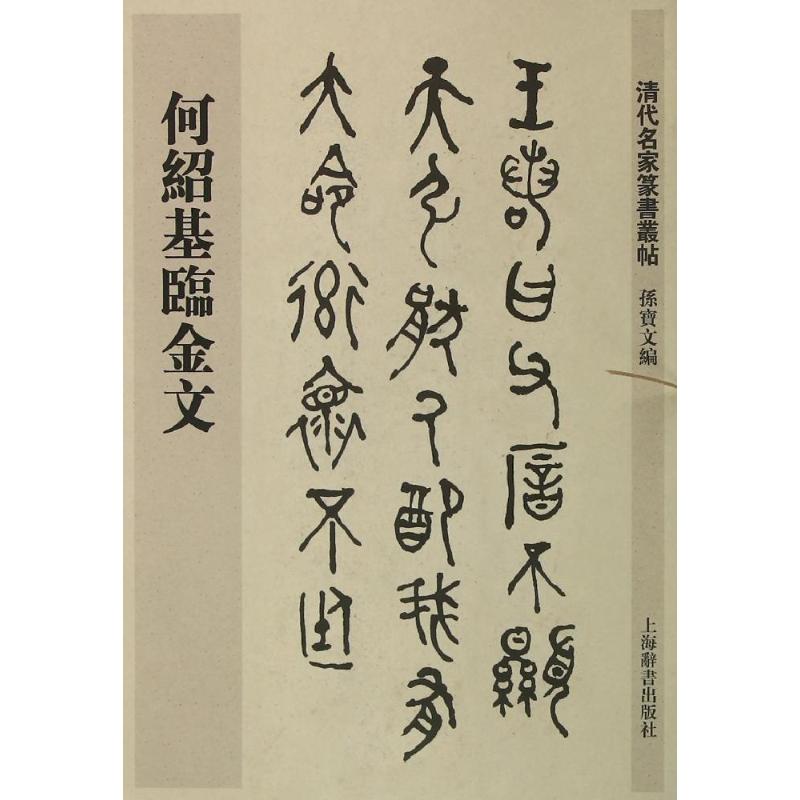 清代名家篆書叢帖
孫寶文編
上海辭書出版社
王若曰父厝不顯
天弘猒厥配我有
大命率懷不廷
何紹基臨金文